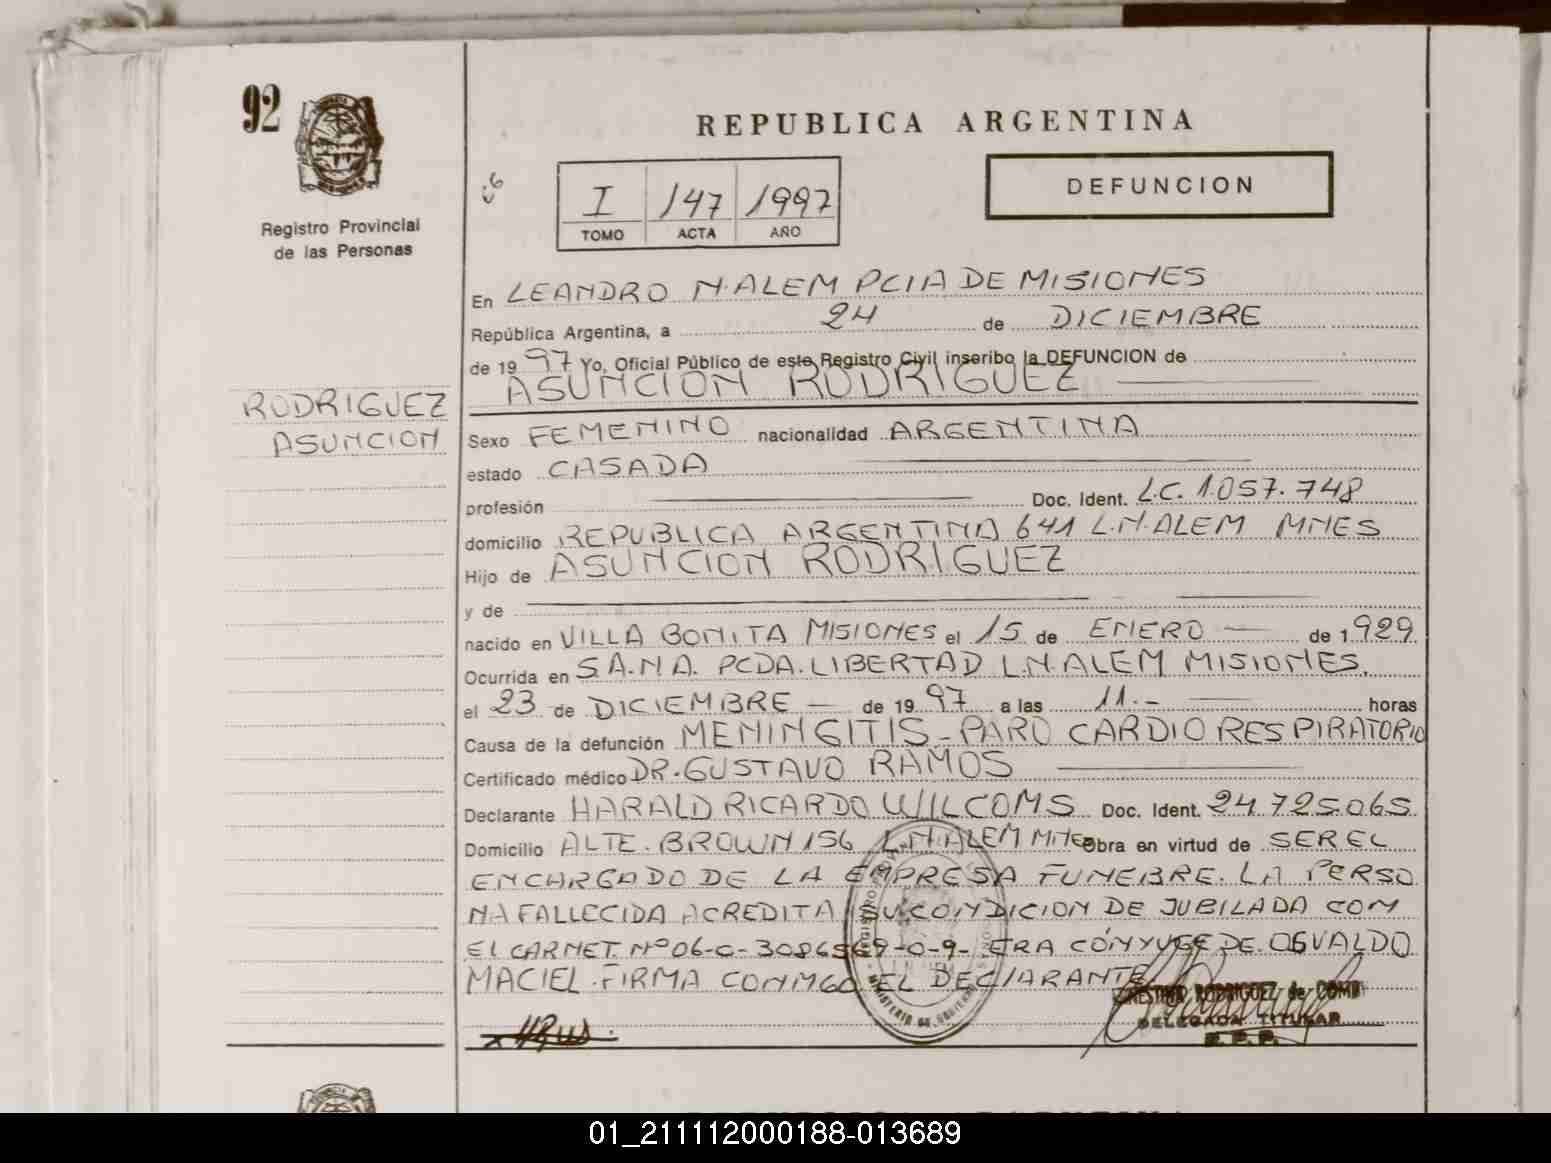 92
Registro Provincial
de las Personas
REPUBLICA ARGENTINA
I 147 1997
TOMO ACTA AÑO
DEFUNCION
En LEANDRO N. ALEM PCIA DE MISIONES
República Argentina, a 24 de DICIEMBRE
de 1997 Yo, Oficial Público de este Registro Civil inscribo la DEFUNCION de
ASUNCION RODRIGUEZ
RODRIGUEZ
ASUNCION
Sexo FEMENINO nacionalidad ARGENTINA
estado CASADA
profesión Doc. Ident. L.C. 1.057.748
domicilio REPUBLICA ARGENTINA 641 L.N.ALEM MNES
Hijo de ASUNCION RODRIGUEZ
y de
nacido en VILLA BONITA MISIONES el 15 de ENERO de 1929
Ocurrida en S.A.N.A. PCDA. LIBERTAD L.N.ALEM MISIONES.
el 23 de DICIEMBRE de 1997 a las 11.- horas
Causa de la defunción MENINGITIS - PARO CARDIO RESPIRATORIO
Certificado médico DR. GUSTAVO RAMOS
Declarante HARALD RICARDO WILCOMS Doc. Ident. 24.725.065
Domicilio ALTE. BROWN 156 L.N.ALEM MNES Obra en virtud de SER EL
ENCARGADO DE LA EMPRESA FUNEBRE. LA PERSO
NA FALLECIDA ACREDITA SU CONDICION DE JUBILADA CON
EL CARNET. Nº 06-0-3086569-0-9- ERA CÓNYUGE DE OSVALDO
MACIEL. FIRMA CONMGO EL DECLARANTE
RODRIGUEZ de
DELEGADA TITULAR
R. P. P.
01_211112000188-013689